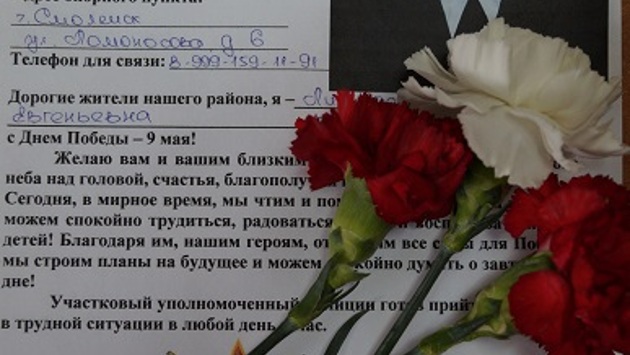 г. Смоленск
ул. Ломоносова, д. 6
Телефон для связи: 8-999-159-11-91
Дорогие жители нашего района, я –
Евгеньевна
с Днем Победы – 9 мая!
Желаю вам и вашим близким
неба над головой, счастья,
Сегодня, в мирное время, мы чтим и
можем спокойно трудиться, радоваться
детей! Благодаря им, нашим героям, все для
мы строим планы на будущее и можем думать о
дне!
Участковый уполномоченный готов
в трудной ситуации в любой день